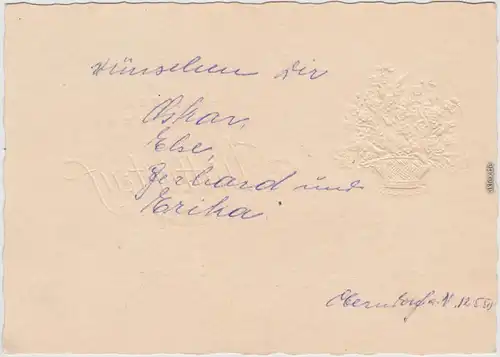 wünschen Dir
Oskar,
Else,
Gerhard und
Erika.
Oberndorf a. N. 12.5.50